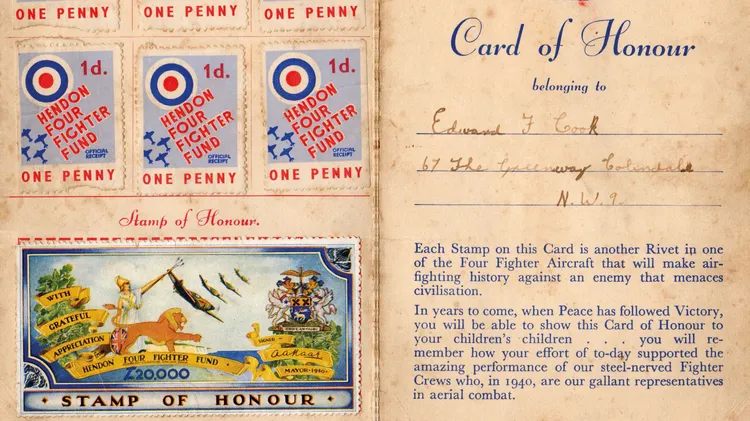 ONE PENNY
ONE PENNY
ONE PENNY
1d.
HENDON
FOUR
FIGHTER
FUND
OFFICIAL
RECEIPT
ONE PENNY
1d.
HENDON
FOUR
FIGHTER
FUND
OFFICIAL
RECEIPT
ONE PENNY
1d.
HENDON
FOUR
FIGHTER
FUND
OFFICIAL
RECEIPT
ONE PENNY
Stamp of Honour.
WITH
GRATEFUL
APPRECIATION
HENDON FOUR FIGHTER FUND
£20,000
SIGNED
MAYOR·1940
STAMP OF HONOUR
Card of Honour
belonging to
Edward F Cook
67 The Greenway Colindale
N.W.9.
Each Stamp on this Card is another Rivet in one
of the Four Fighter Aircraft that will make air-
fighting history against an enemy that menaces
civilisation.
In years to come, when Peace has followed Victory,
you will be able to show this Card of Honour to
your children's children . . . you will re-
member how your effort of to-day supported the
amazing performance of our steel-nerved Fighter
Crews who, in 1940, are our gallant representatives
in aerial combat.